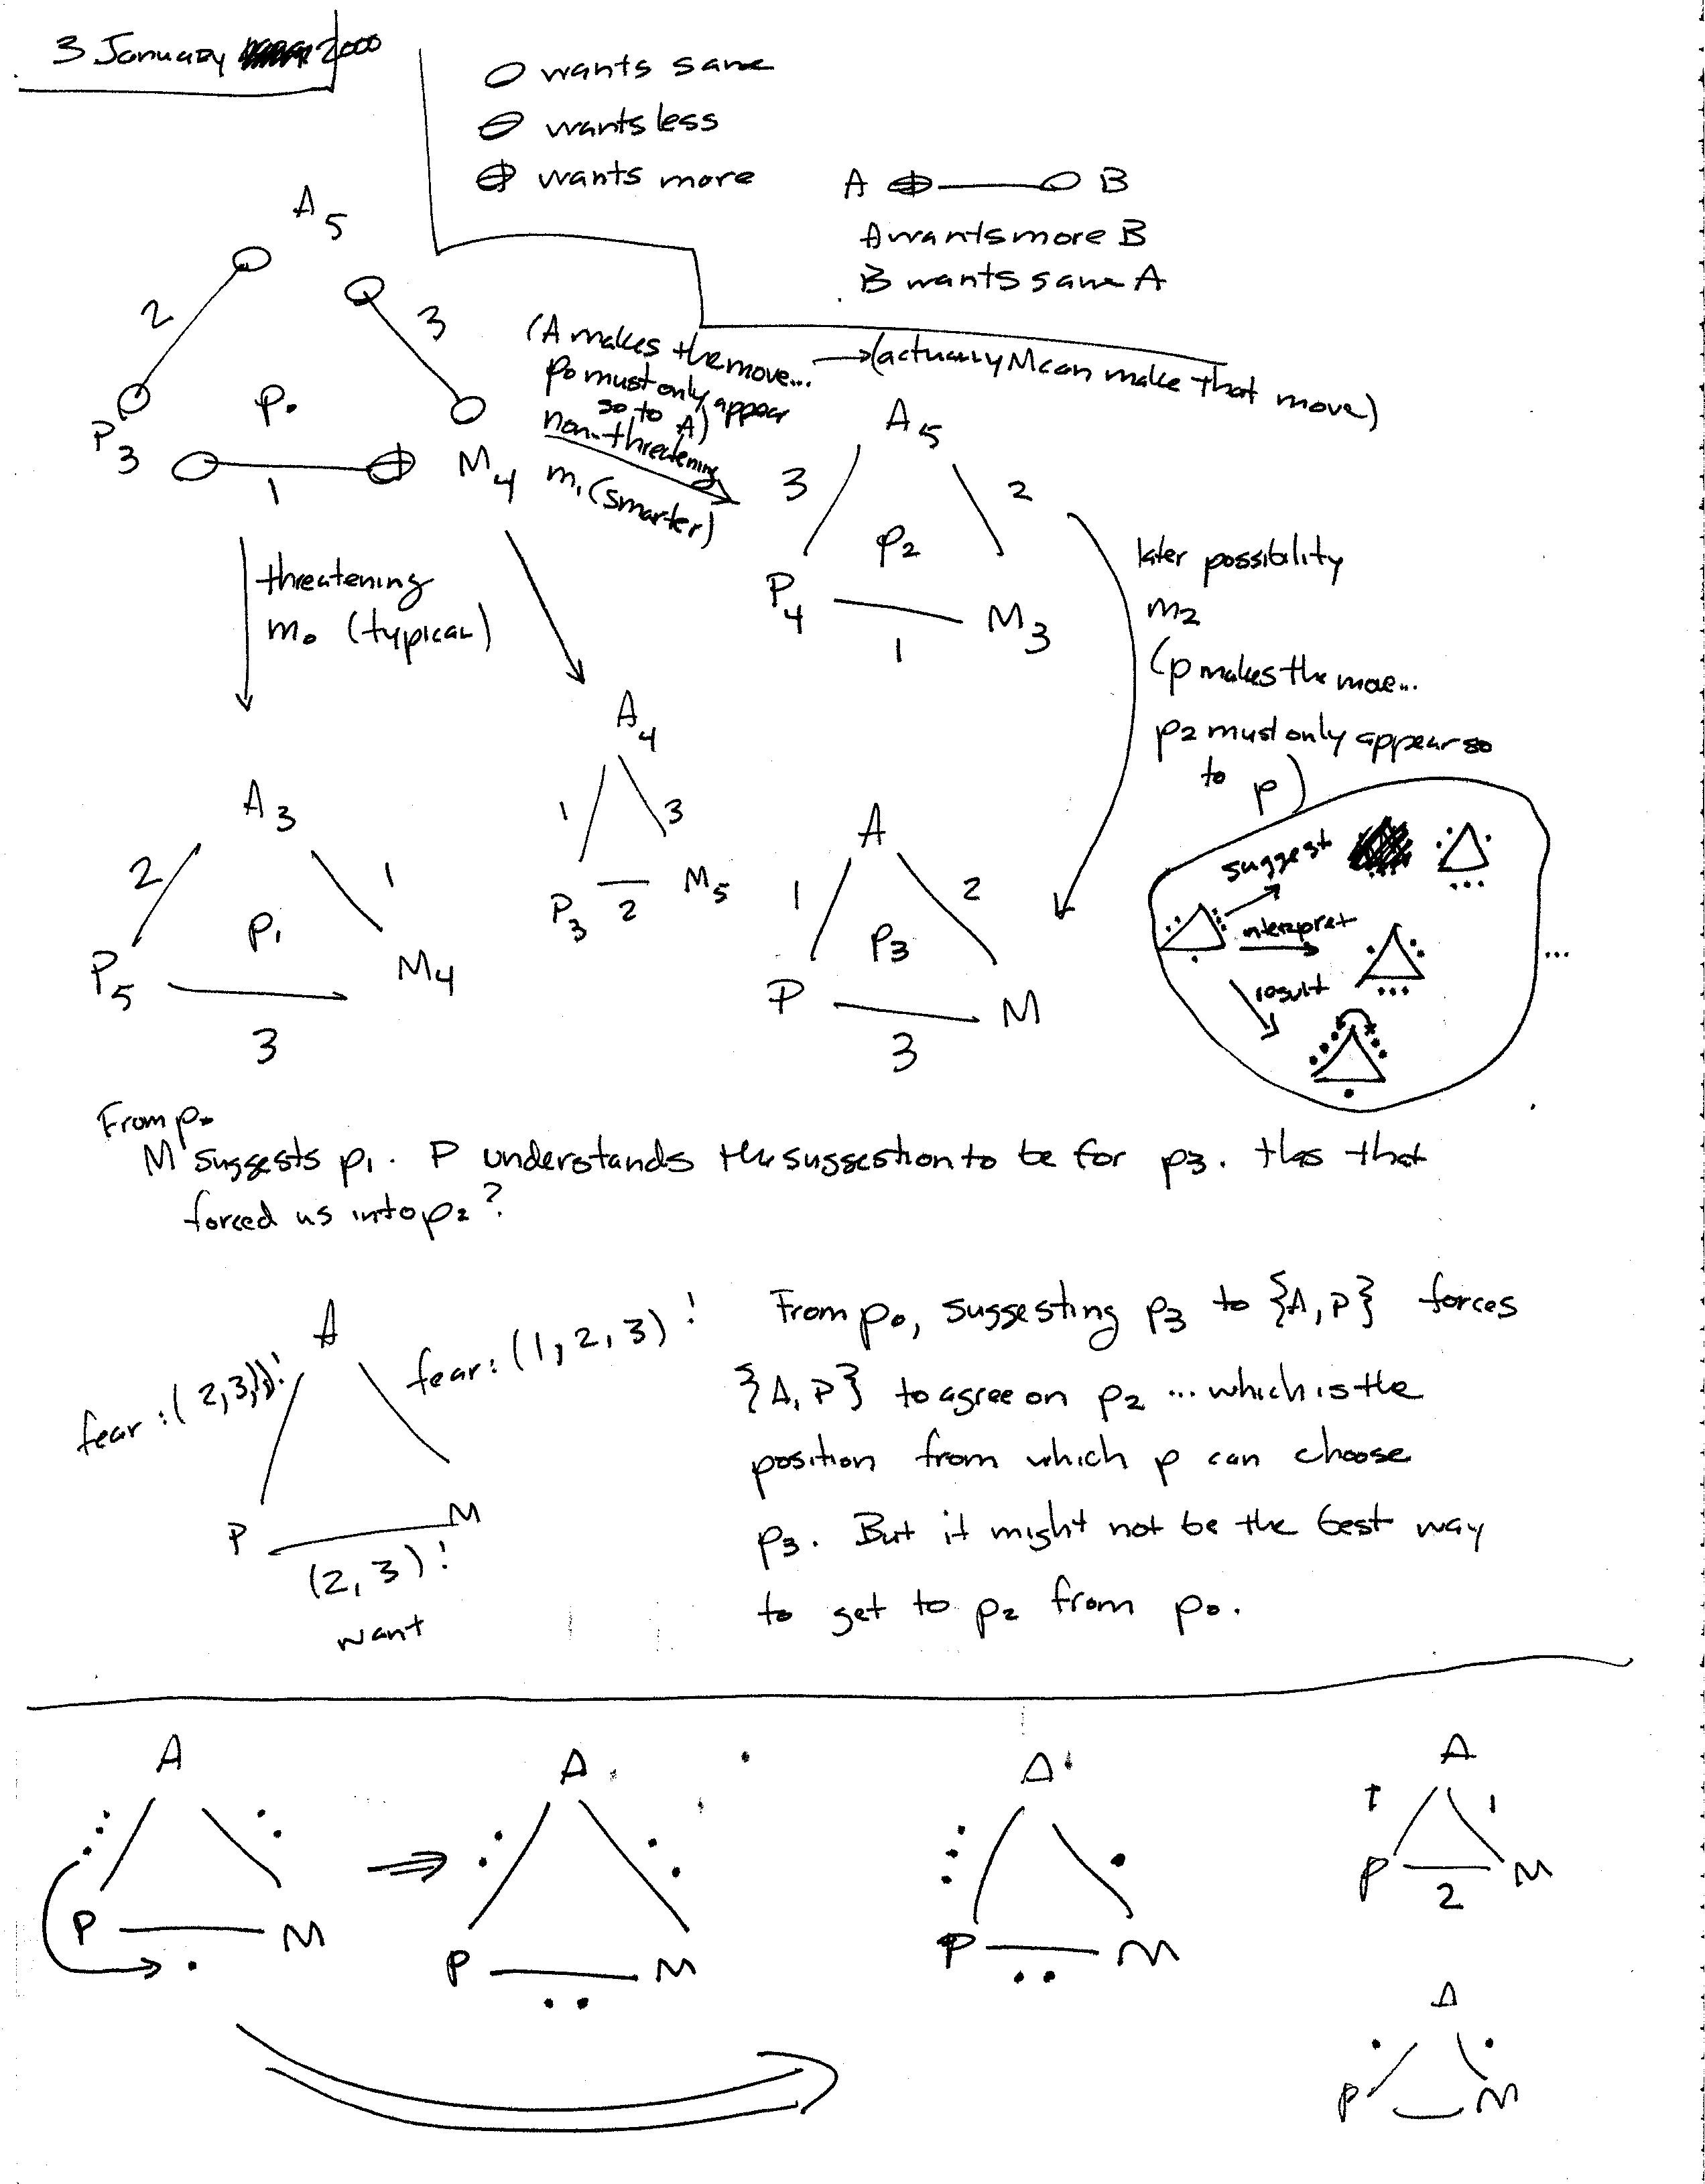 3 January 2000
wants same
wants less
wants more
A B
A wants more B
B wants same A
A5
2
3
P3
p0
M4
1
(A makes the move...
p0 must only appear
so to A)
non-threatening
m1 (smarter)
(actually M can make that move)
A5
3
2
p2
P4
M3
1
threatening
m0 (typical)
later possibility
m2
(p makes the move...
p2 must only appear so
to p)
A4
1
3
P3
2
M5
A3
2
1
p1
P5
M4
3
A
1
2
p3
P
M
3
suggest
interpret
...
result
From p0
M suggests p1. P understands the suggestion to be for p3. Has that
forced us into p2?
A
fear: (2,3,1)!
fear: (1,2,3)!
P
M
(2,3)!
want
From p0, suggesting p3 to {A,P} forces
{A,P} to agree on p2 ... which is the
position from which p can choose
p3. But it might not be the best way
to get to p2 from p0.
A
P
M
A
P
M
A
P
M
A
1
1
P
M
2
A
P
M